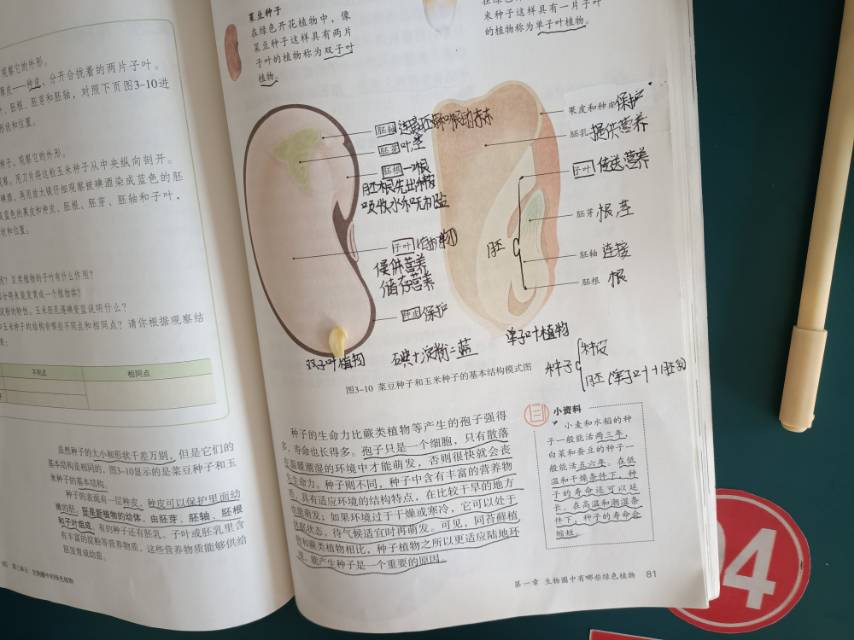 观察它的外形。
种皮,分开合拢着的两片子叶。
胚根、胚芽和胚轴,对照下页图3-10进
状和位置。
种子,观察它的外形。
用刀片将这粒玉米种子从中央纵向剖开。
碘液,再用放大镜仔细观察被碘液染成蓝色的胚
蓝色的果皮和种皮、胚根、胚芽、胚轴和子叶,
状和位置。
玉米植物的子叶有什么作用?
相同点?请你根据观察结
不同点
相同点
虽然种子的大小和形状千差万别,但是它们的
基本结构是相同的。图3-10显示的是菜豆种子和玉
米种子的基本结构。
种子的表面有一层种皮,种皮可以保护里面幼
嫩的胚。胚是新植物的幼体,由胚芽、胚轴、胚根
和子叶组成。有的种子还有胚乳。子叶或胚乳里含
有丰富的淀粉等营养物质,这些营养物质能够供给
胚发育成幼苗。
菜豆种子
在绿色开花植物中,像
菜豆种子这样具有两片
子叶的植物称为双子叶
植物。
米种子这样具有一片子叶
的植物称为单子叶植物。
胚轴
胚芽 叶茎
胚根 根
胚根先出种皮
吸收水分
子叶
提供营养
储存营养
种皮 保护
双子叶植物
碘+淀粉=蓝
果皮和种皮 保护
胚乳 提供营养
子叶 传送营养
胚芽 根茎
胚轴 连接
胚根 根
胚
单子叶植物
图3-10 菜豆种子和玉米种子的基本结构模式图
种子
种皮
胚
种子的生命力比蕨类植物等产生的孢子强得
多,寿命也长得多。孢子只是一个细胞,只有散落
在温暖潮湿的环境中才能萌发,否则很快就会丧
失生命力。种子则不同,种子中含有丰富的营养物
质,具有适应环境的结构特点,在比较干旱的地方
也能萌发;如果环境过于干燥或寒冷,它可以处于
休眠状态,待气候适宜时再萌发。可见,同苔藓植
物和蕨类植物相比,种子植物之所以更适应陆地环
境,能产生种子是一个重要的原因。
小资料
小麦和水稻的种
子一般能活两三年,
白菜和蚕豆的种子一
般能活五六年。在低
温和干燥条件下,种
子的寿命还可以延
长。在高温和潮湿条
件下,种子的寿命会
缩短。
第一章 生物圈中有哪些绿色植物 81
04